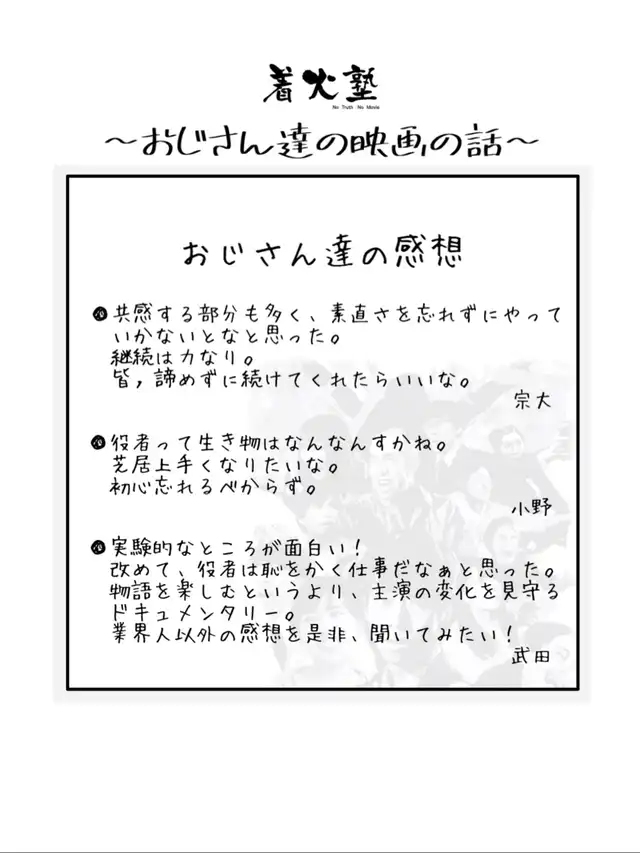 着火塾
No Truth No Movie
～おじさん達の映画の話～
おじさん達の感想
共感する部分も多く、素直さを忘れずにやって
いかないとなと思った。
継続は力なり。
皆，諦めずに続けてくれたらいいな。
宗大
役者って生き物はなんなんすかね。
芝居上手くなりたいな。
初心忘れるべからず。
小野
実験的なところが面白い！
改めて、役者は恥をかく仕事だなぁと思った。
物語を楽しむというより、主演の変化を見守る
ドキュメンタリー。
業界人以外の感想を是非、聞いてみたい！
武田